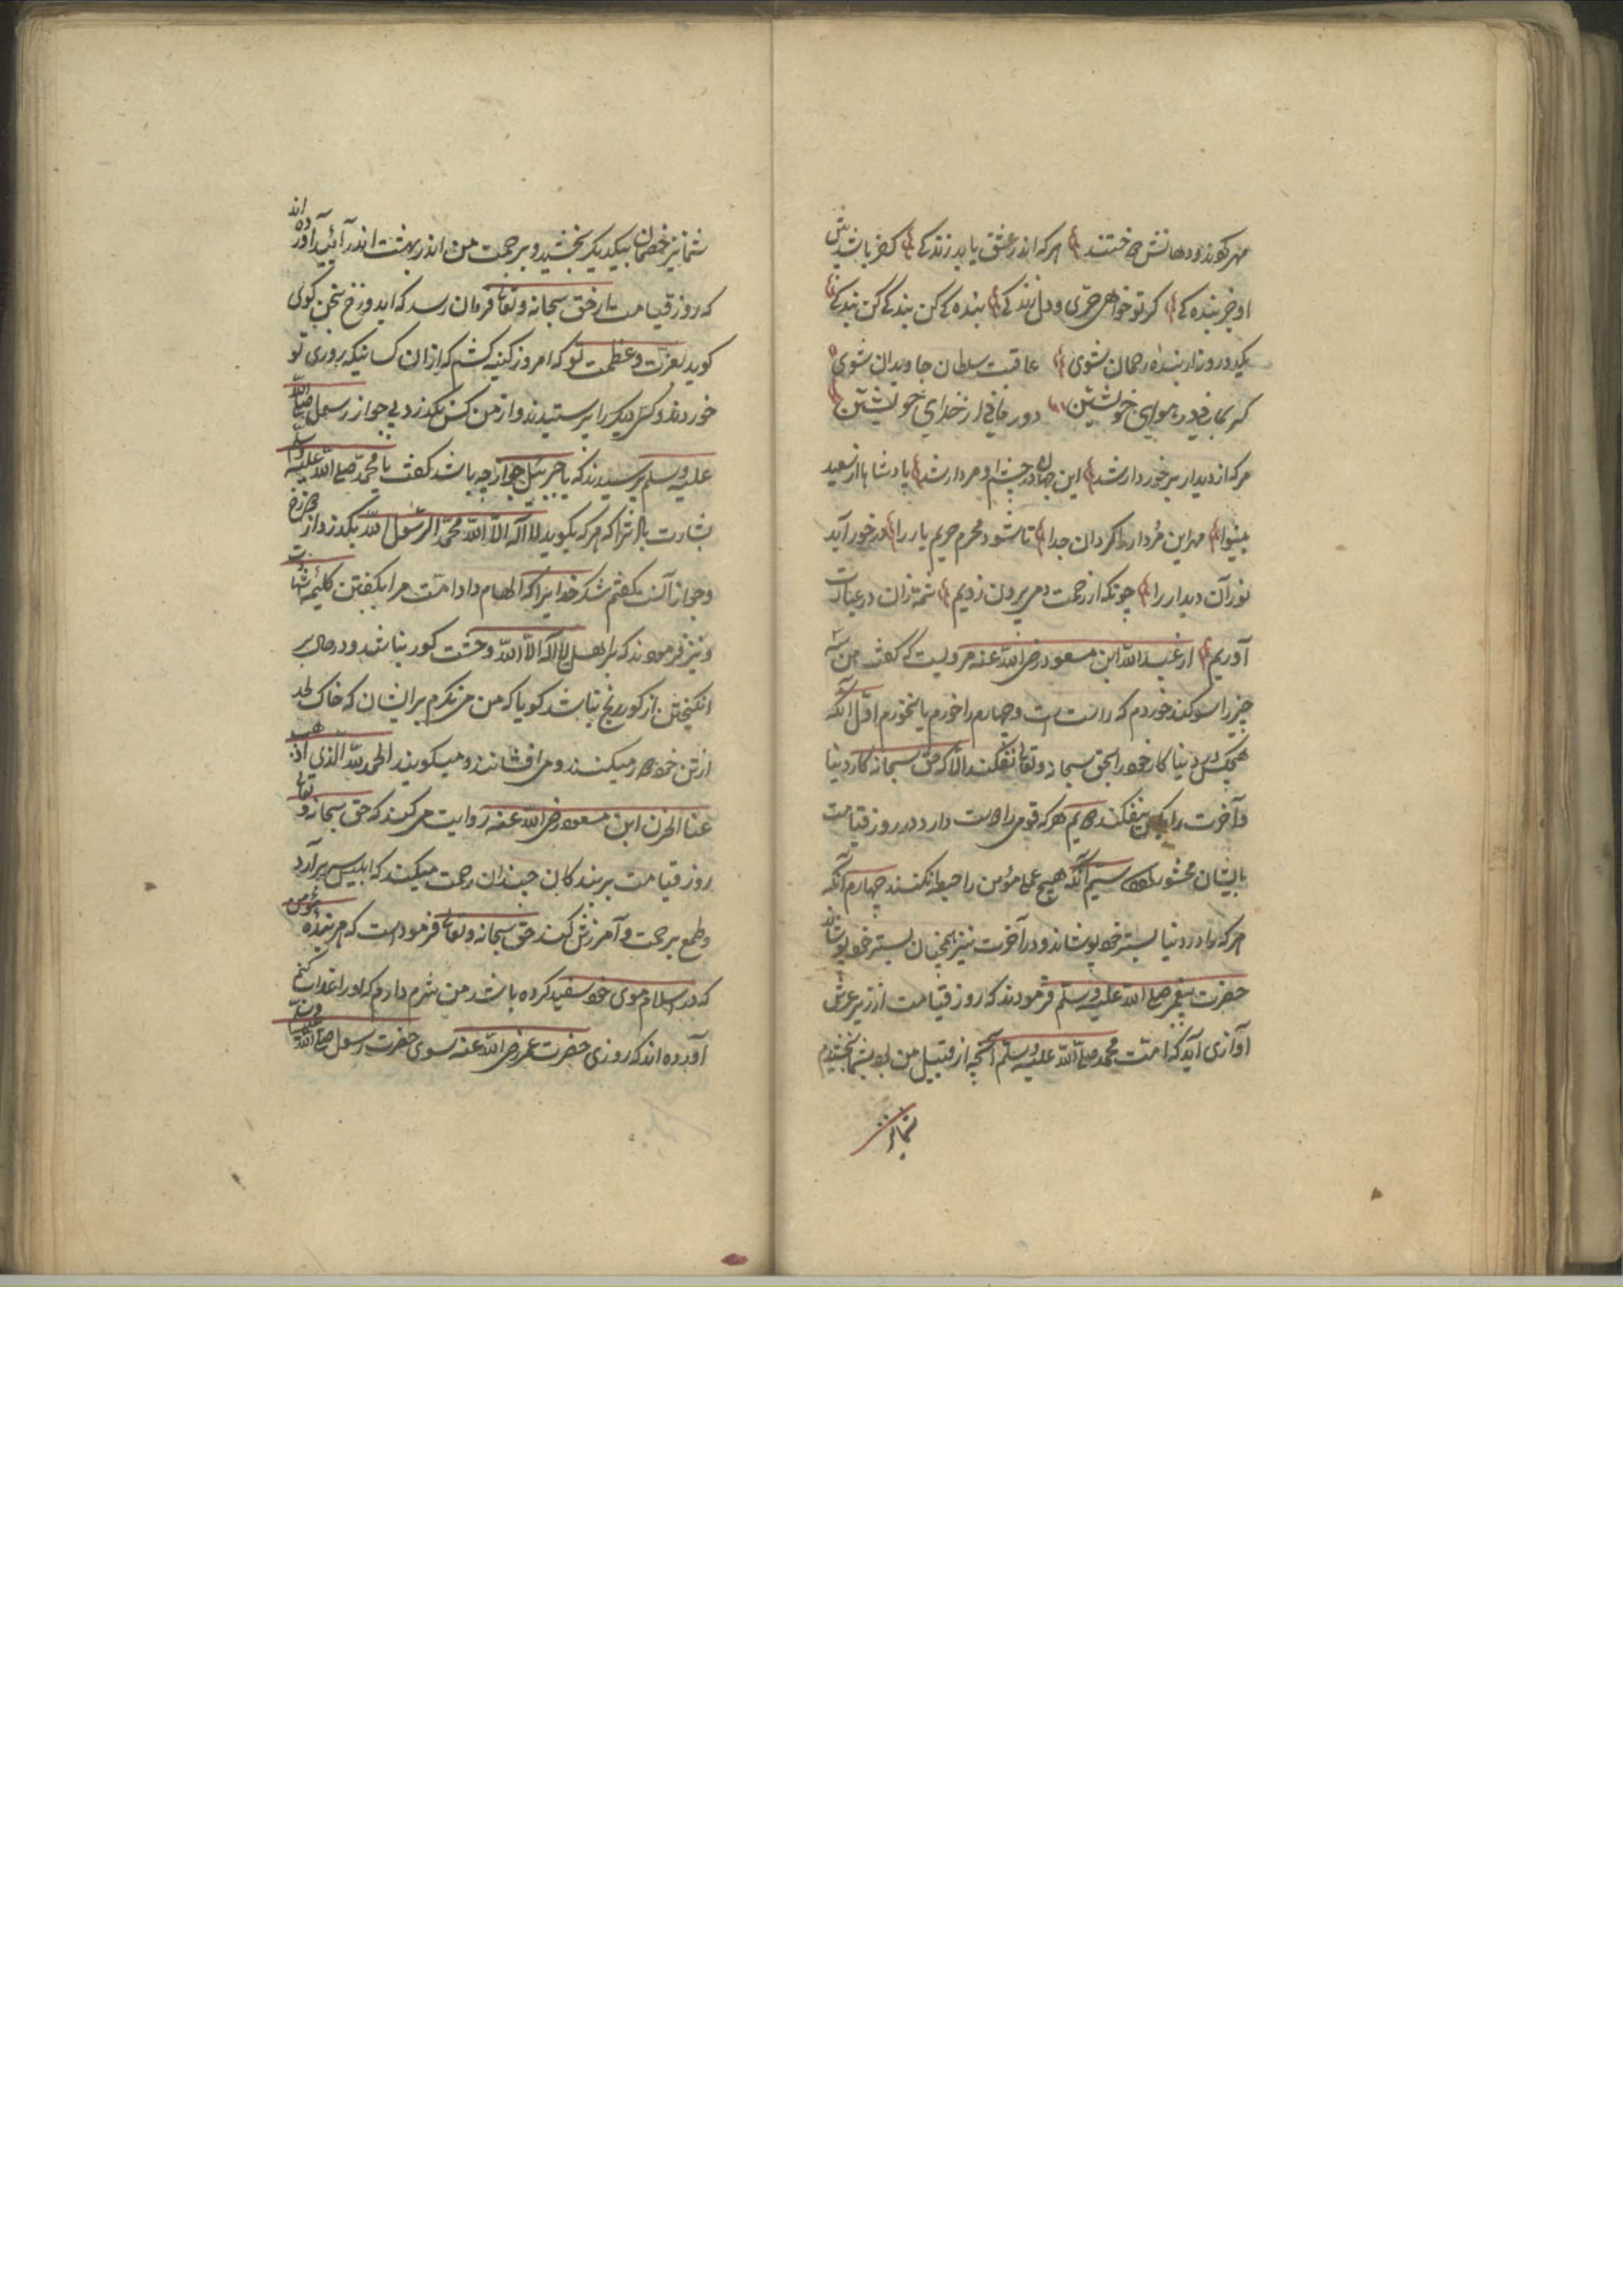 مهر کردند و دهانش دوختند هر که اندر عشق یابد زندگی کفر باشد پیش
او جز بندگی گر تو خواهی حری و دل زندگی بندگی کن بندگی کن بندگی
یکدو روز ار بنده رحمان شوی عاقبت سلطان جاویدان شوی
گر بمانی در هوای خویشتن دور مانی از خدای خویشتن
هر که از دیدار برخوردار شد این جهان در چشم او مردار شد پادشاها از سعید
بینوا مهر این مردار را گردان جدا تا شود محرم حریم یار را در خور آید
نور آن دیدار را چونکه از رحمت دمی بیرون زدیم شمه زان در عبارت
آوریم از عبد الله ابن مسعود رضی الله عنه مرویست که گفت من سه
چیز را سوگند خوردم که راست است و چهارم را خورم یا نخورم اول آنکه
هیچکس در دنیا کار خود را بحق سبحانه و تعالی نفکند الا که حق سبحانه کار دنیا
و آخرت را بیفکند دویم هر که قومی را دوست دارد در روز قیامت
بایشان محشور بود سیم آنکه هیچ عمل مؤمن را حبطه نکنند چهارم آنکه
هر که را در دنیا بستر خود پوشاند و در آخرت نیز همچنان بستر خود پوشاند
حضرت پیغمبر صلی الله علیه وسلم فرمودند که روز قیامت از زیر عرش
آوازی آید که امت محمد صلی الله علیه وسلم آنچه از قبیل من بود بشما بخشیدم
شما نیز
شما نیز خصمان بیکدیگر بخشید و برحمت من اندر بهشت اندر آئید آورده اند
که روز قیامت از حق سبحانه و تعالی فرمان رسد که ای دوزخ سخن گوی
گوید بعزت و عظمت تو که امروز کینه کشم از آن کسانیکه روزی تو
خوردند و کس دیگر را پرستیدند و از من کس نگذرد بی جواز رسول صلی الله
علیه وسلم پرسیدند که یا جبرئیل جواز چه باشد گفت یا محمد صلی الله علیه وسلم
بشارت باد ترا که هر که بگوید لا اله الا الله محمد الرسول الله بگذرد از دوزخ
و جواز آنست گفتم شکر خدایرا که الهام داد امت مرا بگفتن کلیمه شهادت
و نیز فرمودند که بر اهل لا اله الا الله وحشت گور نباشد و در حال بر
انگیختن از گور رنج نباشد گویا که من می نگرم بر ایشان که خاک لحد
از تن خود دور میکنند و می افشانند و میگویند الحمد لله الذی اذهب
عنا الحزن ابن مسعود رضی الله عنه روایت می کند که حق سبحانه و تعالی
روز قیامت بر بندگان چندان رحمت میکند که ابلیس سر برآرد
و طمع برحمت و آمرزش کند حق سبحانه و تعالی فرمود است که هر بنده مؤمن
که در اسلام موی خود سفید کرده باشد من شرم دارم که او را عذاب کنم
آورده اند که روزی حضرت عمر رضی الله عنه سوی حضرت رسول صلی الله علیه وسلم